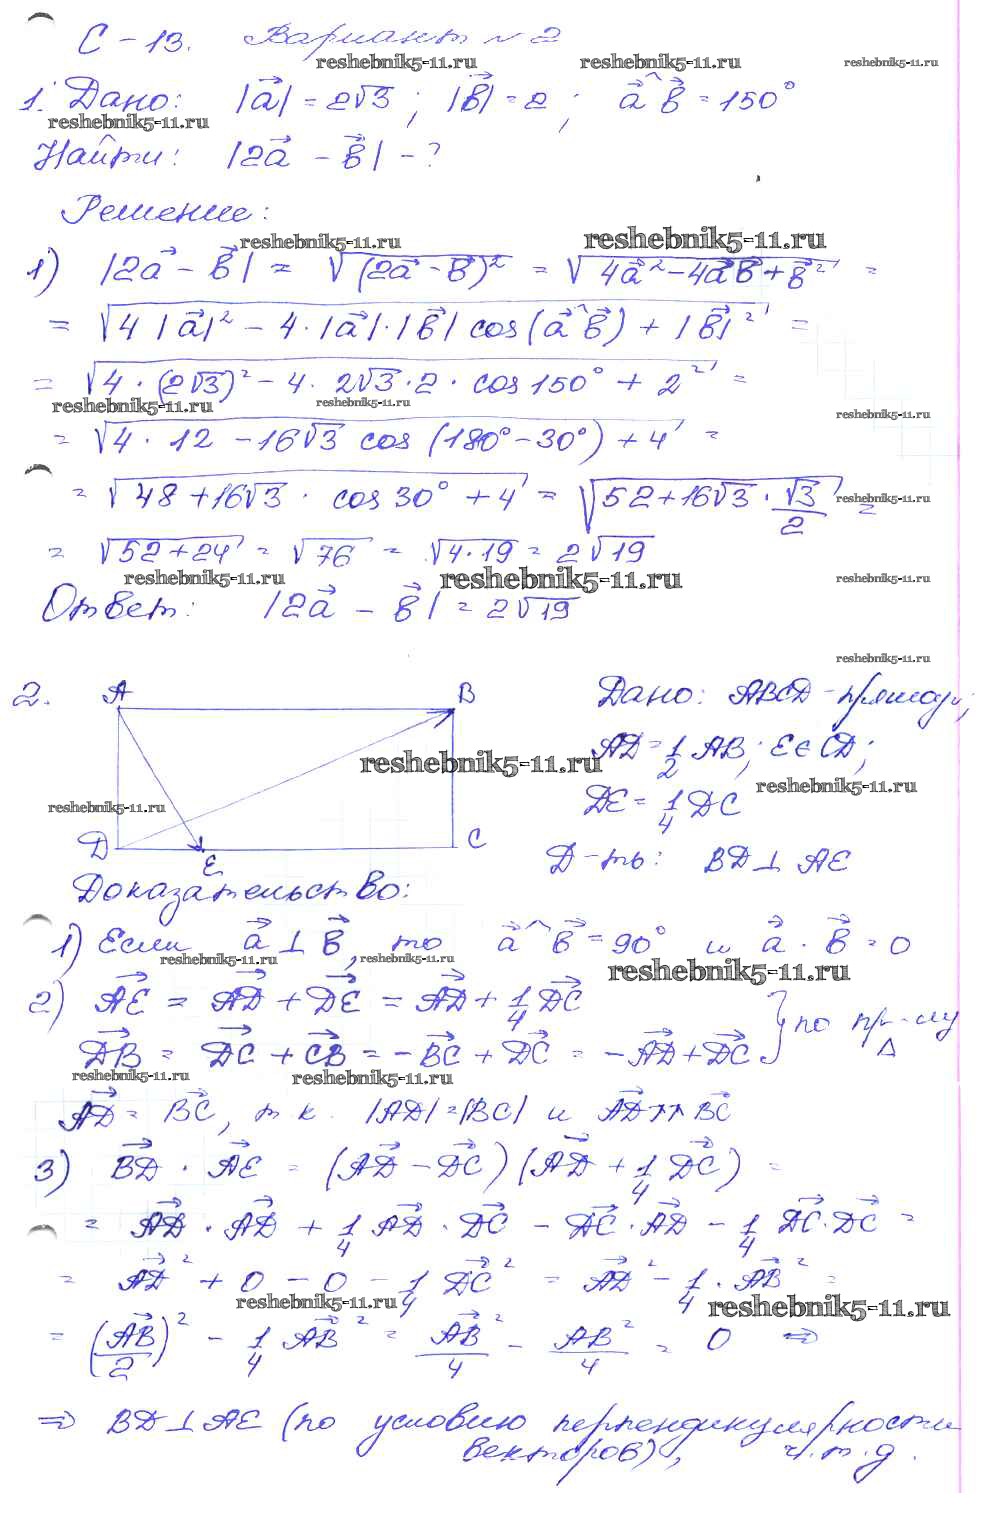 С-13. Вариант №2
reshebnik5-11.ru reshebnik5-11.ru reshebnik5-11.ru
1. Дано: |a⃗| = 2√3 ; |b⃗| = 2 ; a⃗^b⃗ = 150°
reshebnik5-11.ru
Найти: |2a⃗ - b⃗| - ?
Решение:
reshebnik5-11.ru reshebnik5-11.ru
1) |2a⃗ - b⃗| = √(2a⃗ - b⃗)² = √4a⃗² - 4a⃗b⃗ + b⃗² =
= √4|a⃗|² - 4·|a⃗|·|b⃗| cos(a⃗^b⃗) + |b⃗|² =
= √4·(2√3)² - 4·2√3·2·cos150° + 2² =
reshebnik5-11.ru reshebnik5-11.ru reshebnik5-11.ru
= √4·12 - 16√3 cos(180°-30°) + 4 =
= √48 + 16√3 · cos30° + 4 = √52 + 16√3 · √3/2 =
reshebnik5-11.ru
= √52+24 = √76 = √4·19 = 2√19
reshebnik5-11.ru reshebnik5-11.ru reshebnik5-11.ru
Ответ: |2a⃗ - b⃗| = 2√19
reshebnik5-11.ru
2. A B Дано: ABCD - прямоуг;
AD = 1/2 AB; E∈CD;
reshebnik5-11.ru reshebnik5-11.ru
DE = 1/4 DC
reshebnik5-11.ru
D E C Д-ть: BD⊥AE
Доказательство:
1) Если a⃗⊥b⃗, то a⃗^b⃗ = 90° и a⃗·b⃗ = 0
reshebnik5-11.ru reshebnik5-11.ru reshebnik5-11.ru
2) AE⃗ = AD⃗ + DE⃗ = AD⃗ + 1/4 DC⃗
DB⃗ = DC⃗ + CB⃗ = -BC⃗ + DC⃗ = -AD⃗ + DC⃗ } по пр-лу Δ
reshebnik5-11.ru reshebnik5-11.ru
AD⃗ = BC⃗, т.к. |AD| = |BC| и AD⃗↑↑BC⃗
3) BD⃗ · AE⃗ = (AD⃗ - DC⃗)(AD⃗ + 1/4 DC⃗) =
= AD⃗·AD⃗ + 1/4 AD⃗·DC⃗ - DC⃗·AD⃗ - 1/4 DC⃗·DC⃗ =
= AD⃗² + 0 - 0 - 1/4 DC⃗² = AD⃗² - 1/4·AB⃗² =
reshebnik5-11.ru reshebnik5-11.ru
= (AB⃗/2)² - 1/4 AB⃗² = AB⃗²/4 - AB²/4 = 0 ⇒
⇒ BD⊥AE (по условию перпендикулярности
векторов), ч.т.д.